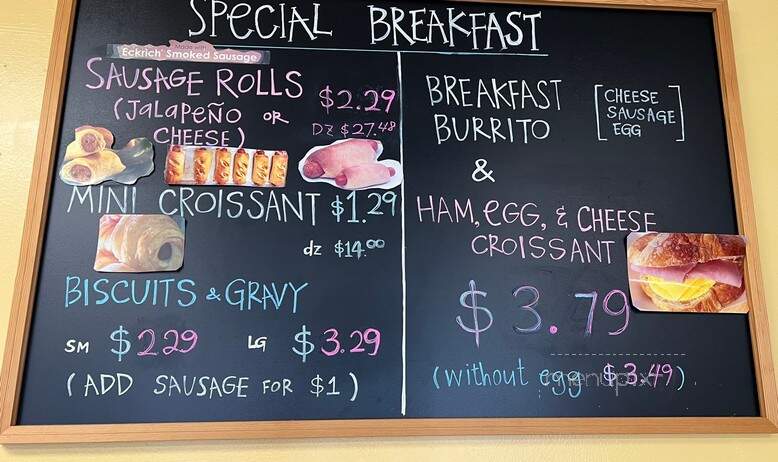 SPECIAL BREAKFAST
Made with
Eckrich® Smoked Sausage
SAUSAGE ROLLS $2.29
(JALAPEÑO OR DZ $27.48
CHEESE)
MINI CROISSANT $1.29
dz $14.00
BISCUITS & GRAVY
SM $2.29 LG $3.29
(ADD SAUSAGE FOR $1)
BREAKFAST
BURRITO
[CHEESE
SAUSAGE
EGG]
&
HAM, EGG, & CHEESE
CROISSANT
$3.79
(without egg $3.49)
menupix